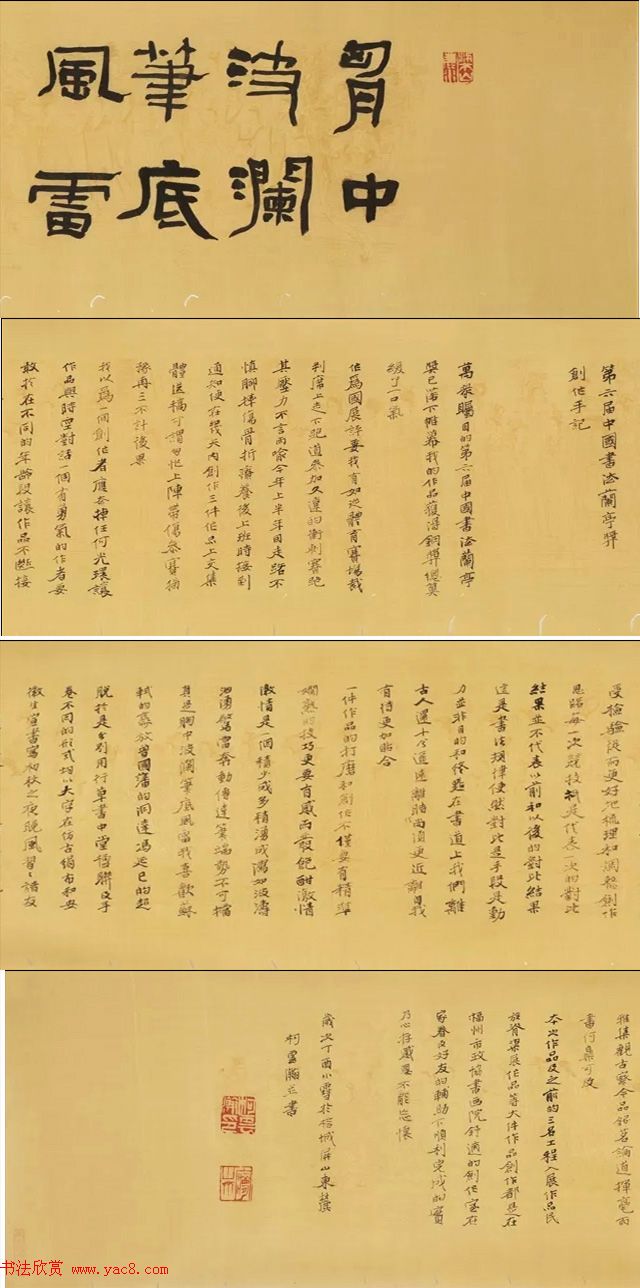 胷中
波瀾
筆底
風雷
第六届中國書法蘭亭奬
創作手記
萬衆矚目的第六届中國書法蘭亭
奬已落下帷幕我的作品獲得銅奬總算
緩了一口氣
作爲國展評委我有如從體育賽場裁
判席上走下跑道參加久違的衝刺賽跑
其壓力不言而喻今年上半年因走路不
慎脚摔傷骨折療養後上班時接到
通知便在幾天内創作三件作品上交集
體送稿可謂匆忙上陣帶傷參賽猶
豫再三不計後果
我以爲一個創作者應丢掉任何光環讓
作品與時空對話一個有勇氣的作者要
敢於在不同的年齡段讓作品不斷接
受檢驗從而更好地梳理和調整創作
思路每一次競技祇是代表一次的對比
結果並不代表以前和以後的對比結果
這是書法規律使然對比是手段是動
力並非目的和終點在書道上我們離
古人還十分遥遠離時而須更近離自我
有待更加貼合
一件作品的打磨和創作不僅要有精準
嫻熟的技巧更要有感而發飽酣激情
激情是一個積少成多積湧成瀉如波濤
洶湧驚雷奔動傳達筆端勢不可擋
真是胸中波瀾筆底風雷我喜歡蘇
軾的豪放曾國藩的洞達馮延巳的超
脱於是分别用行草書中堂楷聯及手
卷不同的形式均以大字在仿古絹布和安
徽生宣書寫初秋之夜晚風習習諸友
雅集觀古察今品茗論道揮毫而
書何樂可及
本次作品及之前的三名工程入展作品民
族脊梁展作品等大件作品創作都是在
福州市政協書画院舒適的創作室在
家眷及好友的輔助下順利完成的實
乃心存感恩不能忘懷
歲次丁酉小雪於榕城屏山東麓
柯雲瀚并書
书法欣赏 www.yac8.com